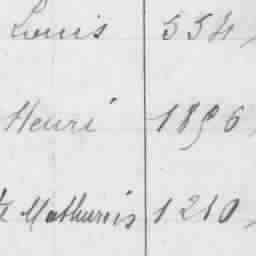 Louis 554
Henri 1896
Mathurin 1210